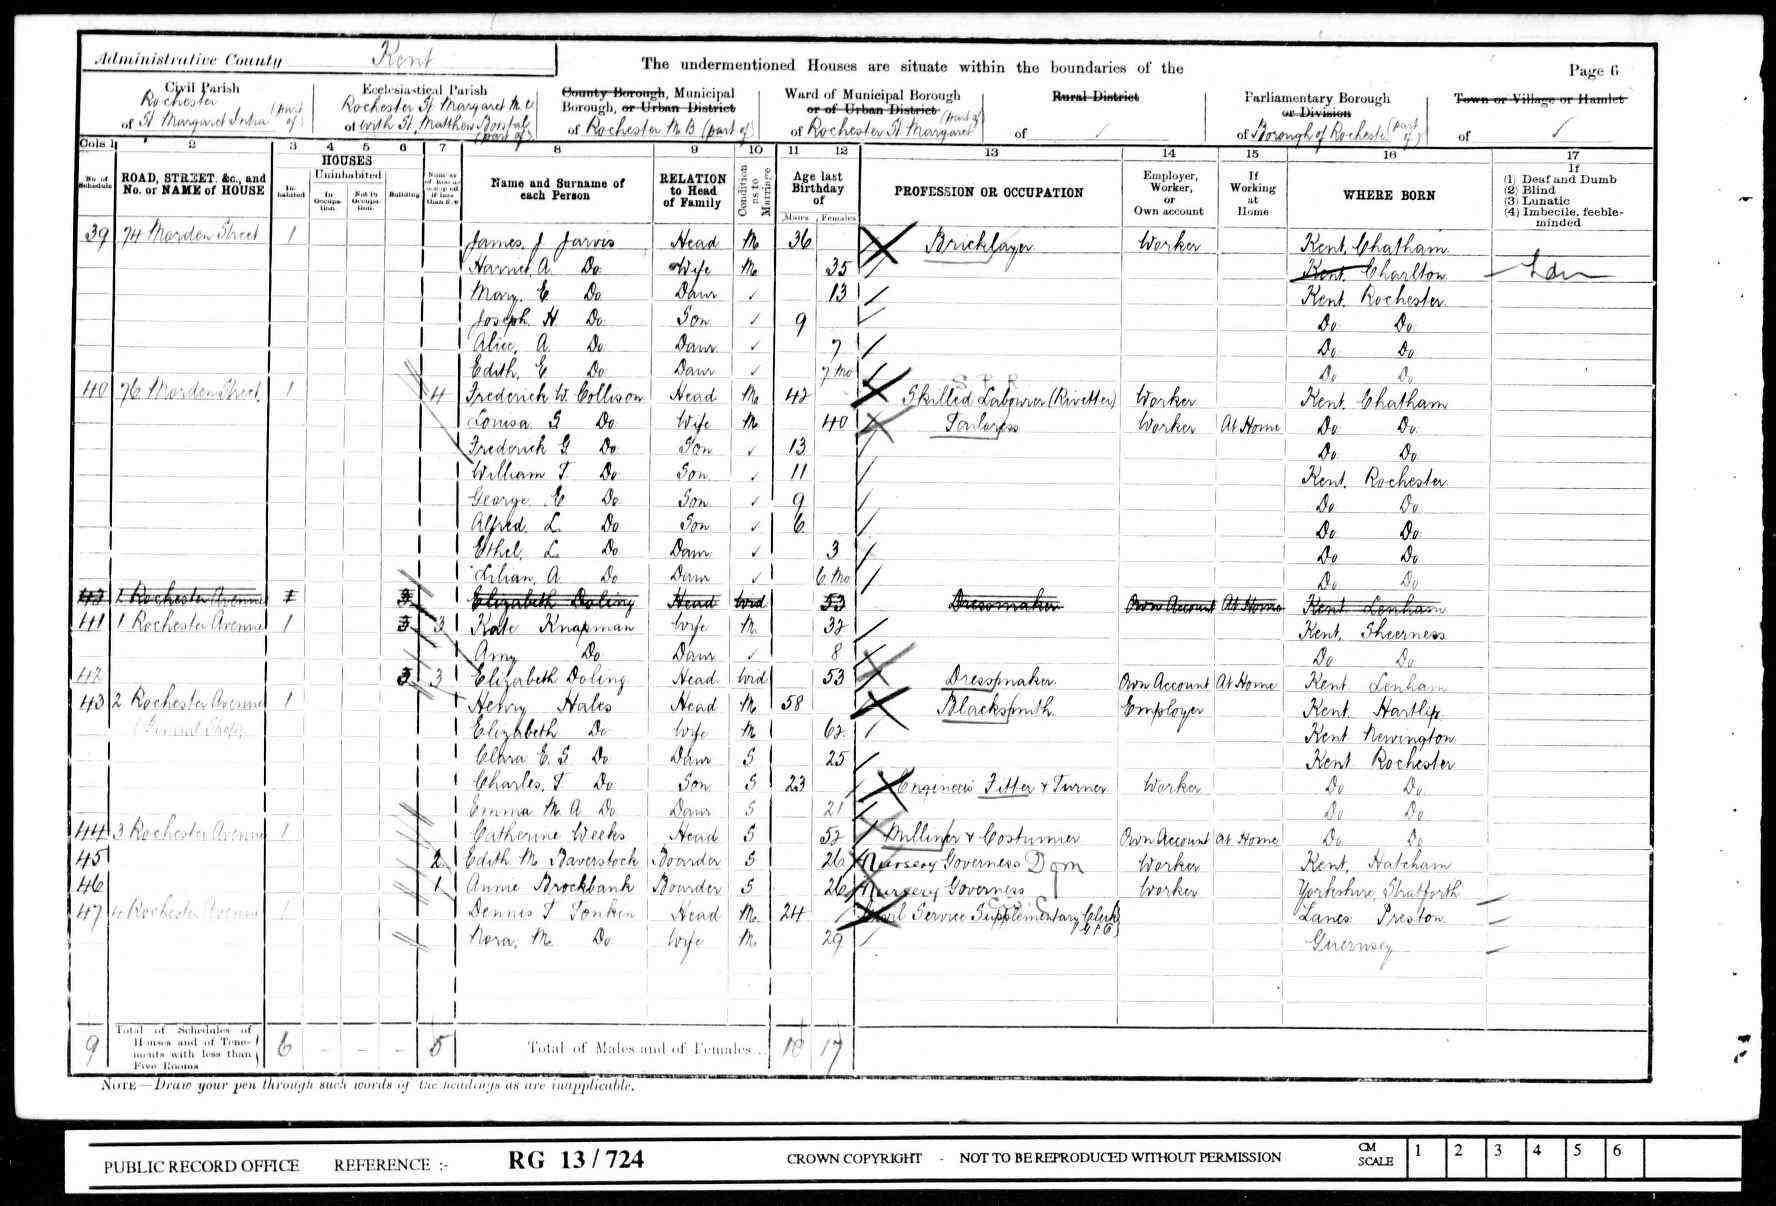 Administrative County Kent
The undermentioned Houses are situate within the boundaries of the
Page 6
Civil Parish
Rochester
of St Margaret Intra (part of)
Ecclesiastical Parish
Rochester St Margaret
of with St Matthew Borstal (part of)
County Borough, Municipal
Borough, or Urban District
of Rochester M.B (part of)
Ward of Municipal Borough
or of Urban District
of Rochester St Margaret (part of)
Rural District
of
Parliamentary Borough
or Division
of Borough of Rochester (part of)
Town or Village or Hamlet
of
Cols 1 2 3 4 5 6 7 8 9 10 11 12 13 14 15 16 17
No. of Schedule
ROAD, STREET, &c., and No. or NAME of HOUSE
HOUSES
Inhabited
Uninhabited
In Occupation
Not in Occupation
Building
Name and Surname of each Person
RELATION to Head of Family
Condition as to Marriage
Age last Birthday of
Males Females
PROFESSION OR OCCUPATION
Employer, Worker, or Own account
If Working at Home
WHERE BORN
If
(1) Deaf and Dumb
(2) Blind
(3) Lunatic
(4) Imbecile, feeble-minded
39 74 Morden Street 1 James J Jarvis Head M 36 Bricklayer Worker Kent. Chatham
Harriet A Do Wife M 35 Kent. Charlton Ldn
Mary. E Do Daur 13 Kent. Rochester
Joseph H Do Son 9 Do Do
Alice. A. Do Daur 7 Do Do
Edith. E Do Daur 7 Mo Do Do
40 76 Morden Street 1 4 Frederick W. Collison Head M 42 Skilled Labourer (Rivetter) Worker Kent. Chatham
Louisa S Do Wife M 40 Tailoress Worker At Home Do Do
Frederick G Do Son 13 Do Do
William T Do Son 11 Kent. Rochester
George. E Do Son 9 Do Do
Alfred. L. Do Son 6 Do Do
Ethel. L Do Daur 3 Do Do
Lilian. A. Do Daur 6 Mo Do Do
42 1 Rochester Avenue 1 3 Elizabeth Doling Head Wid 53 Dressmaker Own Account At Home Kent Lenham
41 1 Rochester Avenue 1 3 3 Kate Knapman Wife M 32 Kent. Sheerness
Amy Do Daur 8 Do Do
42 3 3 Elizabeth Doling Head Wid 53 Dressmaker Own Account At Home Kent Lenham
43 2 Rochester Avenue 1 Henry Hales Head M 58 Blacksmith Employer Kent. Hartlip
Elizabeth Do Wife M 62 Kent Newington
Clara E. S Do Daur S 25 Kent Rochester
Charles. T. Do Son S 23 Engineers Fitter & Turner Worker Do Do
Emma M. A Do Daur S 21 Do Do
44 3 Rochester Avenue 1 Catherine Weeks Head S 52 Milliner & Costumier Own Account At Home Do Do
45 2 Edith M Baverstock Boarder S 26 Nursery Governess Dom Worker Kent. Hatcham
46 1 Annie Brockbank Boarder S 26 Nursery Governess Worker Yorkshire,
47 4 Rochester Avenue 1 Dennis T Tonkin Head M. 24 Civil Service Supplementary Clerk Lancs Preston
Nora. M. Do Wife M 29 Guernsey
9 Total of Schedules of Houses and of Tenements with less than Five Rooms 6 - - - 5 Total of Males and of Females... 10 17
NOTE—Draw your pen through such words of the headings as are inapplicable.
PUBLIC RECORD OFFICE REFERENCE :- RG 13/724 CROWN COPYRIGHT - NOT TO BE REPRODUCED WITHOUT PERMISSION CM SCALE 1 2 3 4 5 6